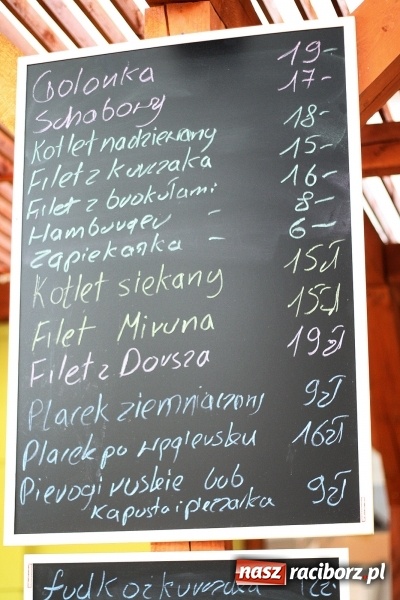 Golonka 19-
Schabowy 17-
Kotlet nadziewany 18-
Filet z kurczaka 15-
Filet z brokułami 16-
Hamburger - 8-
Zapiekanka - 6-
Kotlet siękany 15zł
Filet Miruna 15zł
Filet z Dorsza 19zł
Placek ziemniaczony 9zł
Placek po węgiersku 16zł
Pierogi ruskie lub 9zł
Kapusta i pieczarka
nasz raciborz.pl